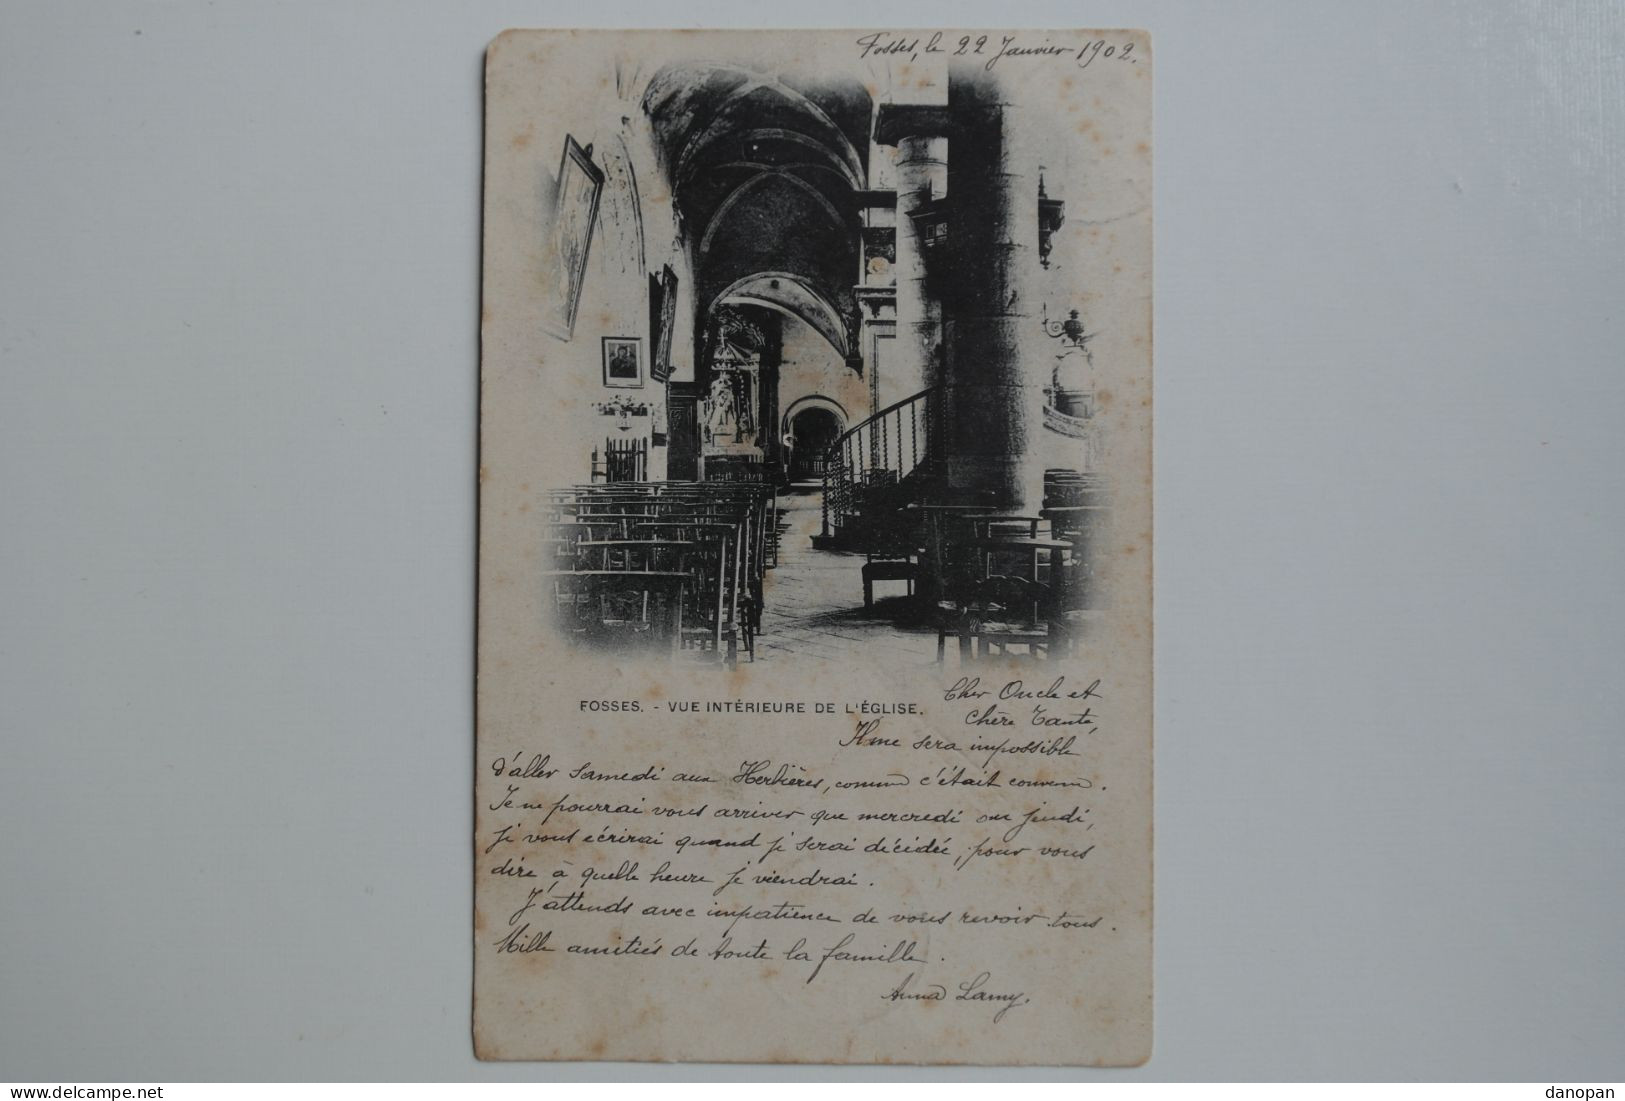 Fosses, le 22 Janvier 1902.
FOSSES. - VUE INTÉRIEURE DE L'ÉGLISE.
Cher Oncle et
Chère Tante,
Il me sera impossible
d'aller Samedi aux Herbières, comme c'était convenu.
Je ne pourrai vous arriver que mercredi ou jeudi,
je vous écrirai quand je serai décidée, pour vous
dire à quelle heure je viendrai.
J'attends avec impatience de vous revoir tous.
Mille amitiés de toute la famille.
Anna Lamy.
delcampe.net
danopan